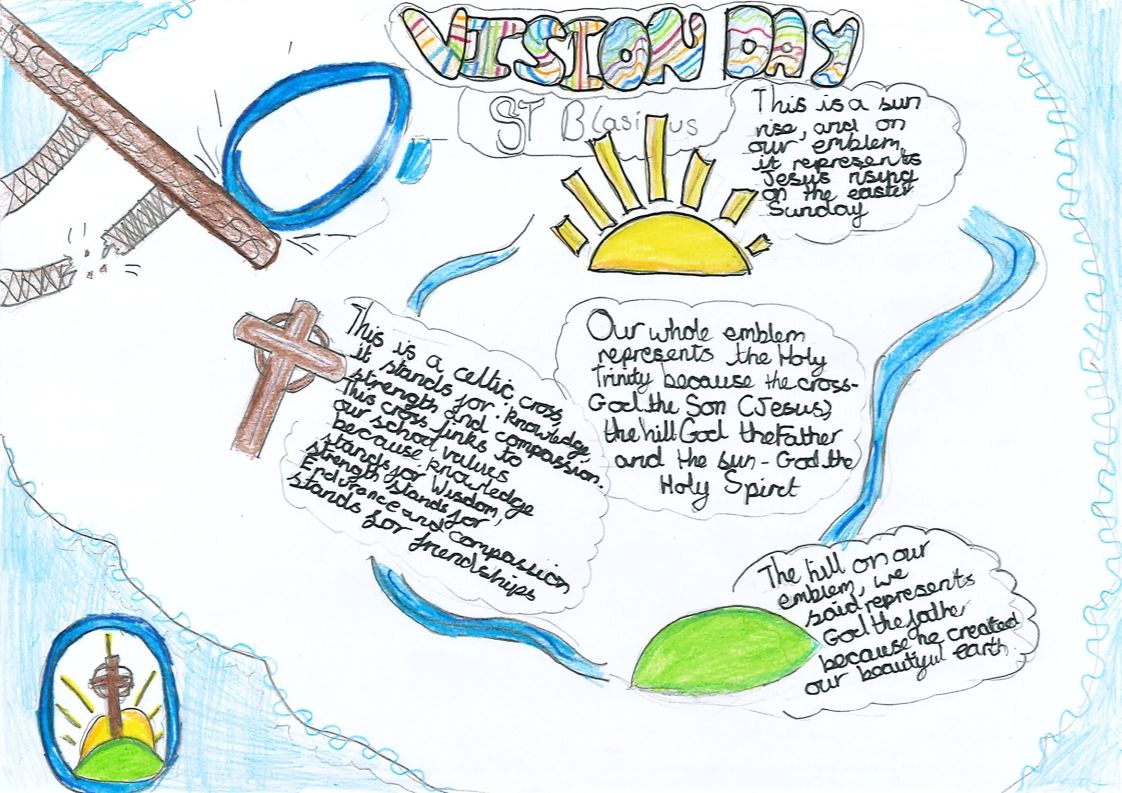 VISION DAY
ST Blasius
This is a sun
rise, and on
our emblem,
it represents
Jesus rising
on the easter
Sunday
This is a celtic cross,
it stands for: knowledge,
strength and compassion.
This cross links to
our school values
because knowledge
stands for Wisdom,
strength stands for
Endurance and compassion
stands for friendships
Our whole emblem
represents the Holy
Trinity because the cross-
God the Son (Jesus),
the hill God the Father
and the sun - God the
Holy Spirit
The hill on our
emblem, we
said represents
God the father
because he created
our beautiful earth